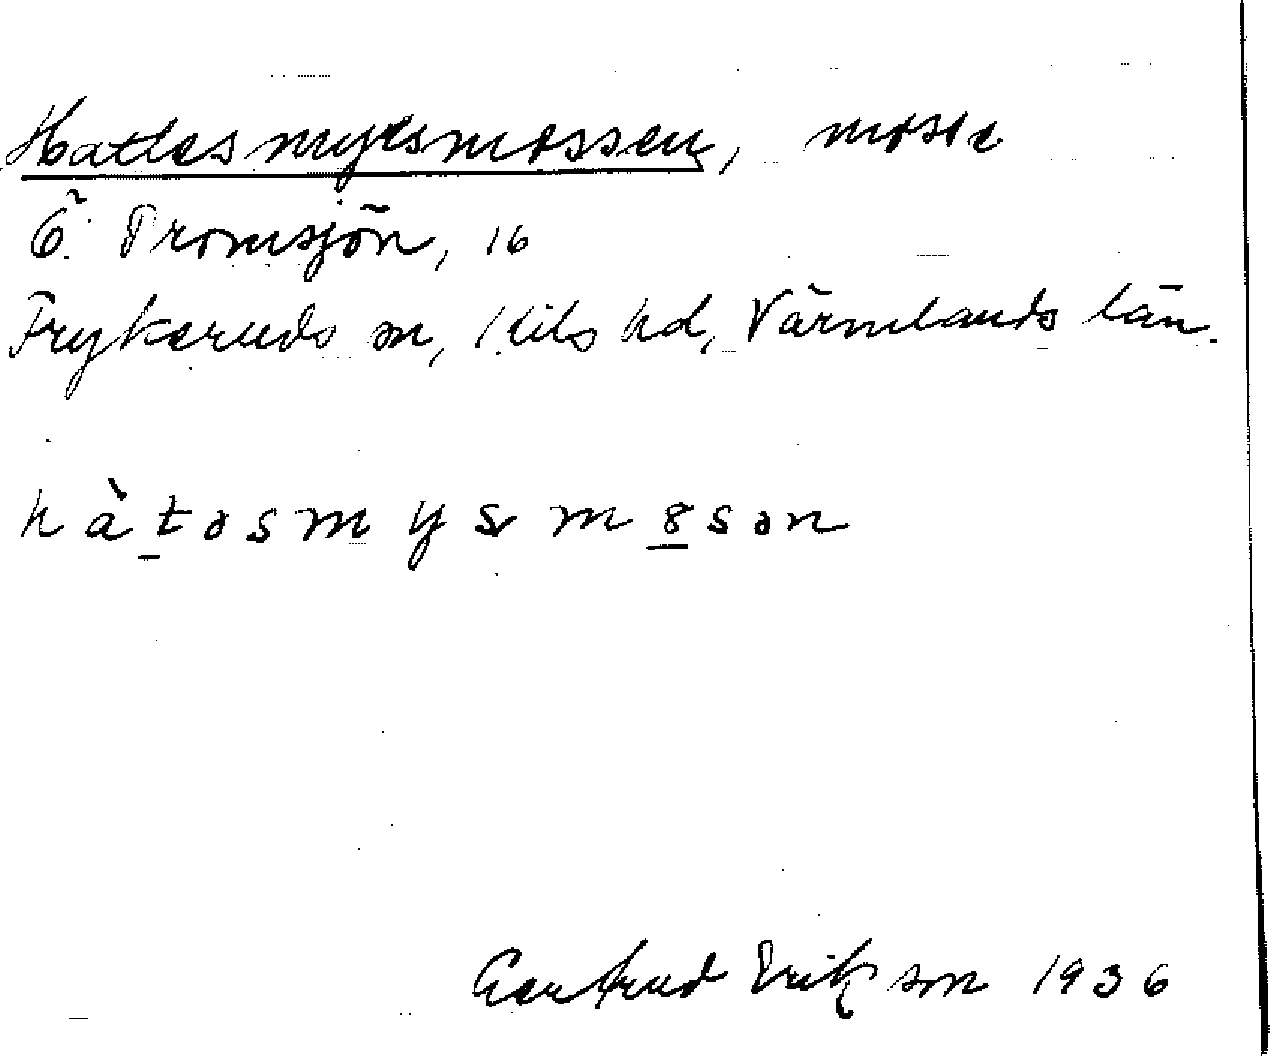 Hatlesmyrsmossen, mosse
Ö. Tromsjön, 16
Frykeruds sn, Kils hd, Värmlands län.
hàtəsmysmɷsən
Gertrud Erikson 1936